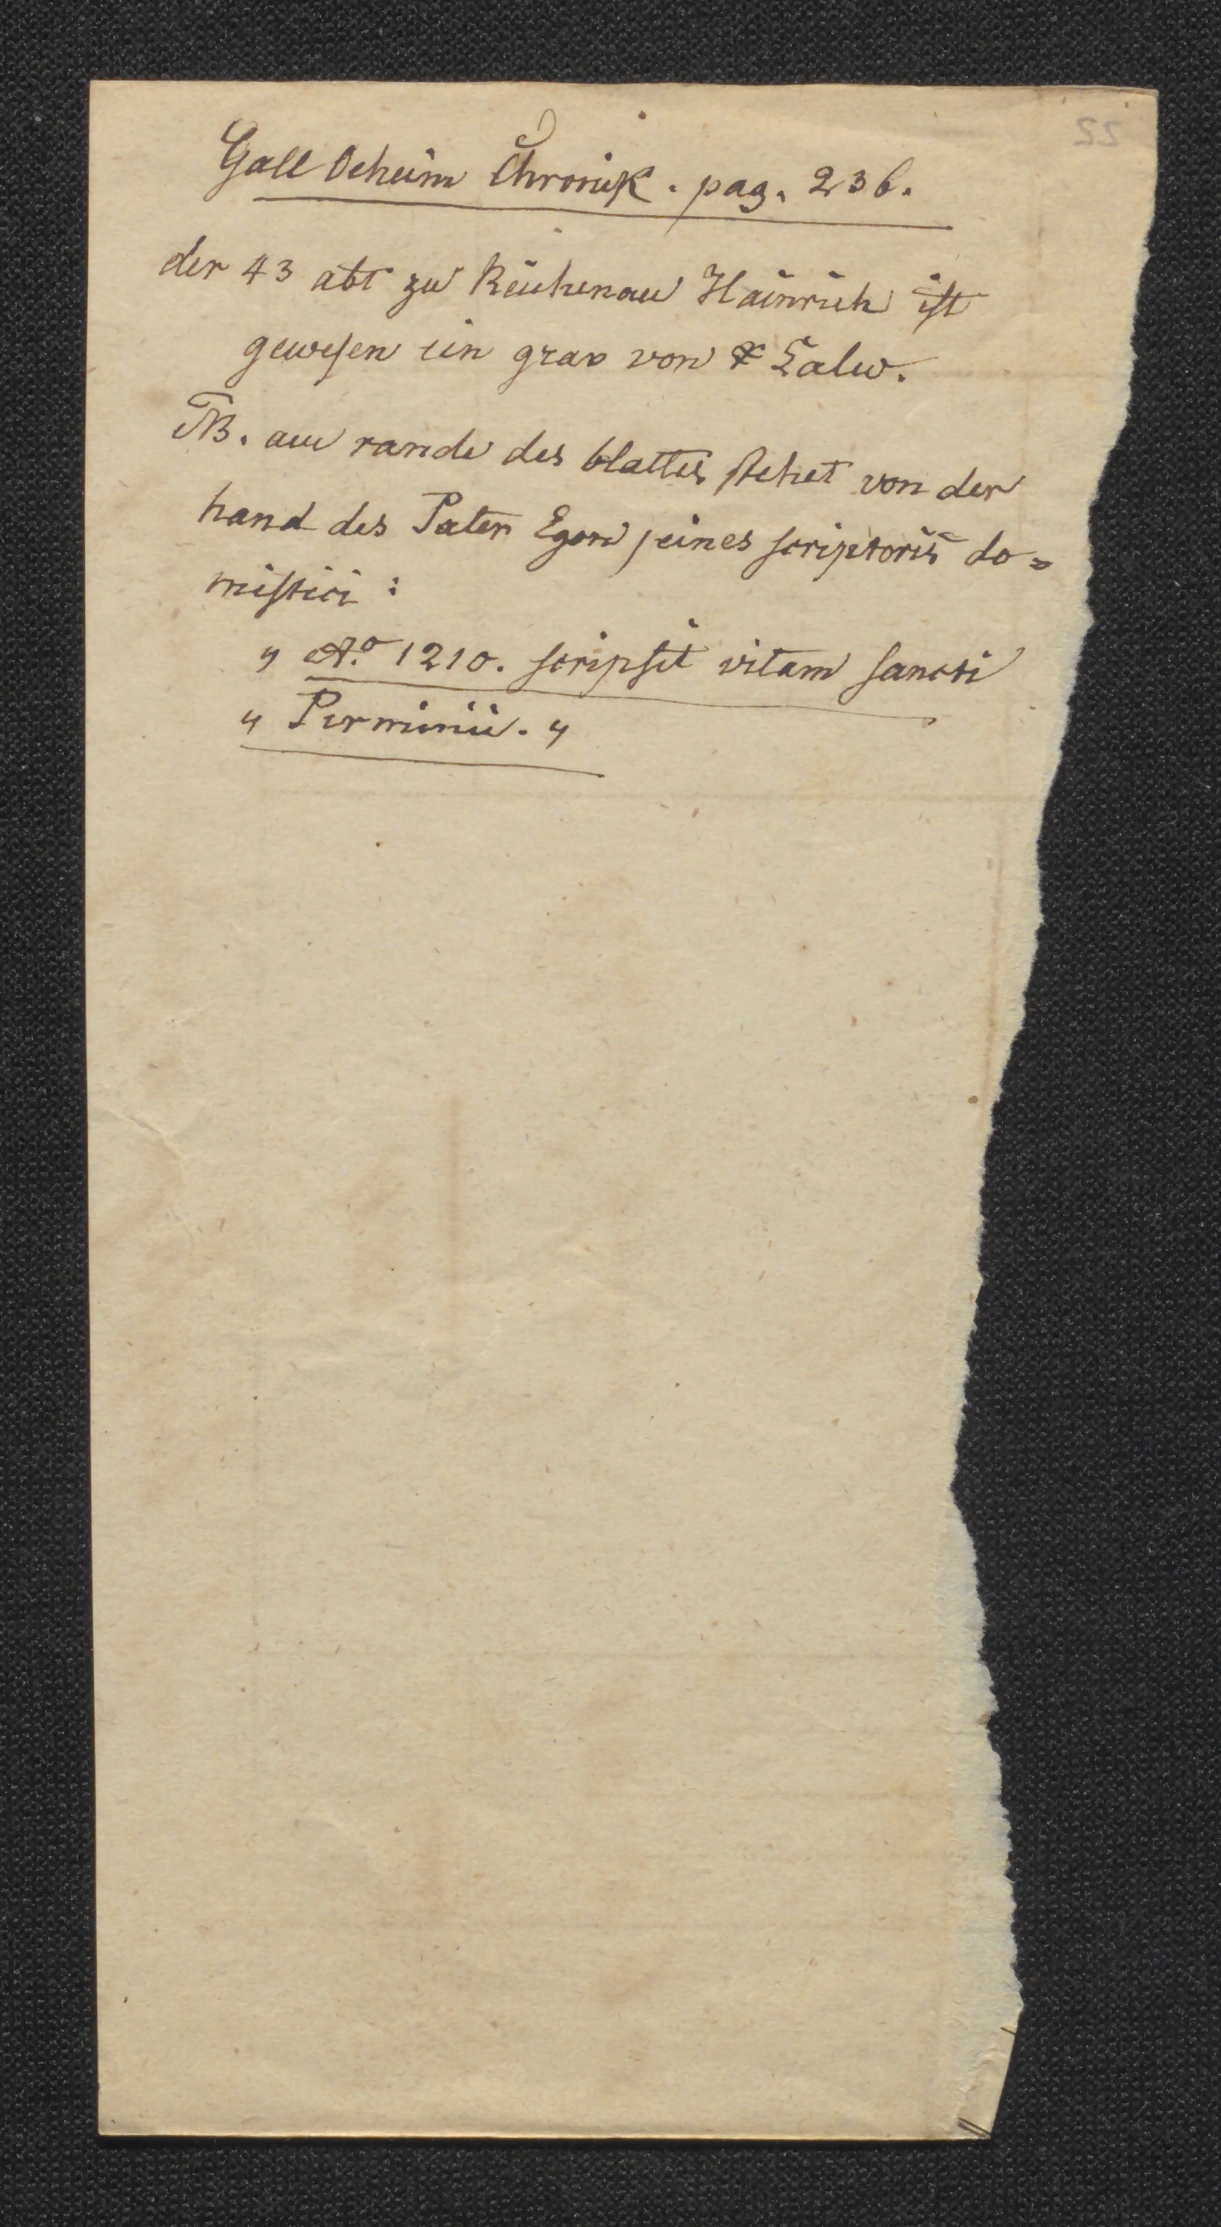 55
Gall Oeheim Chronik. pag. 236.
der 43 abt zu Reichenau Hainrich ist
gewesen ein grav von Calw.
NB. am rande des blattes stehet von der
hand des Pater Egon eines scriptoris do=
mistici:
„ Aº. 1210. scripsit vitam sancti
„ Pirminii. „